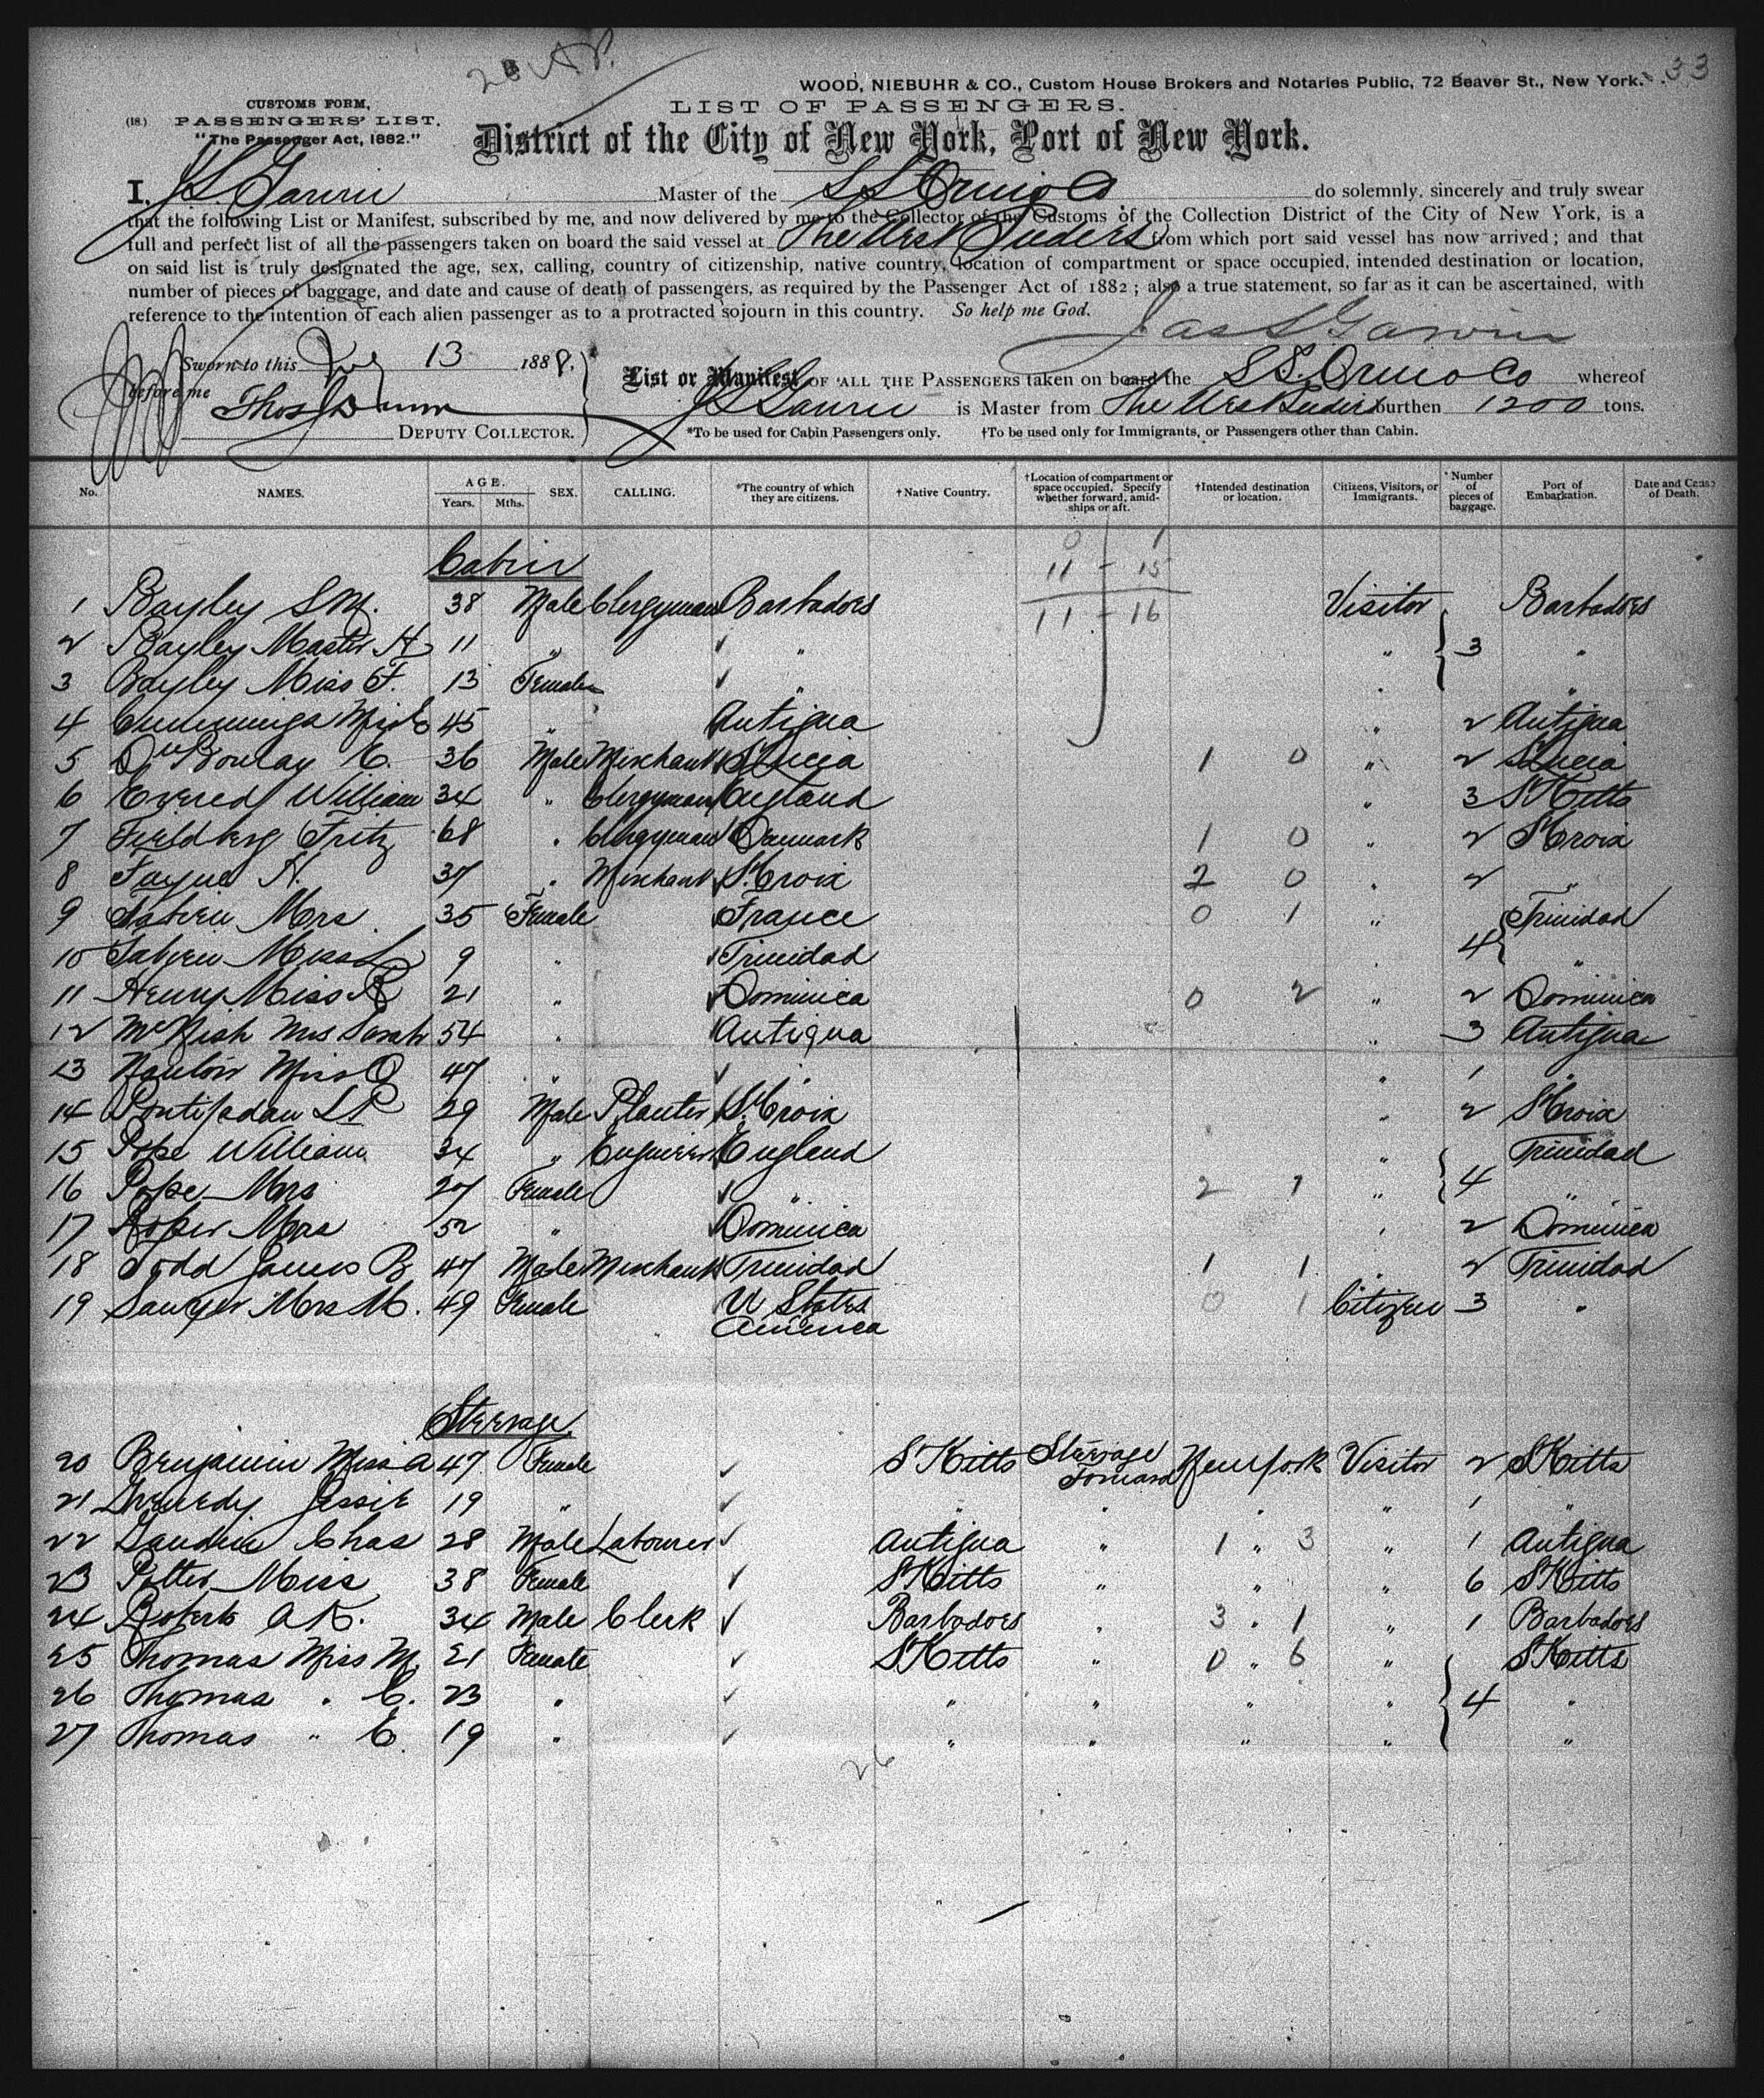 33
WOOD, NIEBUHR & CO., Custom House Brokers and Notaries Public, 72 Beaver St., New York.
CUSTOMS FORM,
(18.) PASSENGERS' LIST.
"The Passenger Act, 1882."
LIST OF PASSENGERS.
District of the City of New York, Port of New York.
I, Master of the S S Orinoco do solemnly, sincerely and truly swear
that the following List or Manifest, subscribed by me, and now delivered by me to the Collector of the Customs of the Collection District of the City of New York, is a
full and perfect list of all the passengers taken on board the said vessel at The West Indies from which port said vessel has now arrived; and that
on said list is truly designated the age, sex, calling, country of citizenship, native country, location of compartment or space occupied, intended destination or location,
number of pieces of baggage, and date and cause of death of passengers, as required by the Passenger Act of 1882; also a true statement, so far as it can be ascertained, with
reference to the intention of each alien passenger as to a protracted sojourn in this country. So help me God.
Jas S Garvin
Sworn to this 13 1888.
before me
DEPUTY COLLECTOR.
List or Manifest OF ALL THE PASSENGERS taken on board the S S. Orinoco whereof
is Master from The West Indies burthen 1200 tons.
*To be used for Cabin Passengers only. †To be used only for Immigrants, or Passengers other than Cabin.
No. NAMES. AGE. Years. Mths. SEX. CALLING. *The country of which they are citizens. †Native Country. †Location of compartment or space occupied. Specify whether forward, amidships or aft. †Intended destination or location. Citizens, Visitors, or Immigrants. Number of pieces of baggage. Port of Embarkation. Date and Cause of Death.
0 1
11 - 15
11 - 16
Cabin
1 Bayley S M. 38 Male Clergyman Barbadoes Visitor Barbadoes
2 Bayley Master H 11 " " " 3 "
3 Bayley Miss F. 13 Female " " "
4 Cummings Miss E 45 " Antigua " 2 Antigua
5 Du Boulay E. 36 Male Merchant St Lucia 1 0 " 2 St Lucia
6 Evered William 34 " Clergyman England " 3 St Kitts
7 Fritz 68 " Clergyman Denmark 1 0 " 2 St Croix
8 H. 37 " Merchant St. Croix 2 0 " 2 "
9 Fabien Mrs 35 Female France 0 1 " Trinidad
10 Fabien Miss L 9 " Trinidad " 4 "
11 Henry Miss R 21 " Dominica 0 2 " 2 Dominica
12 Mrs Sarah 54 " Antigua " 3 Antigua
13 Miss O 47 " " " 1 "
14 L P 29 Male Planter St. Croix " 2 St Croix
15 Pope William 34 " Engineer England " Trinidad
16 Pope Mrs 27 Female " 2 1 " 4 "
17 Roper Mrs 52 " Dominica " 2 Dominica
18 Todd James B 47 Male Merchant Trinidad 1 1 " 2 Trinidad
19 Sawyer Mrs M. 49 Female U States America 0 1 Citizen 3 "
Steerage
20 Benjamin Miss A 47 Female St Kitts Steerage Forward New York Visitor 2 St Kitts
21 Jessie 19 " " " " " 1 "
22 Chas 28 Male Labourer Antigua " 1 " 3 " 1 Antigua
23 Potter Miss 38 Female St Kitts " " " 6 St Kitts
24 Roberts A K. 34 Male Clerk Barbadoes " 3 " 1 " 1 Barbadoes
25 Thomas Miss M. 21 Female St Kitts " 0 " 6 " St Kitts
26 Thomas " C. 23 " " " " " 4 "
27 Thomas " E. 19 " " " " " "
26